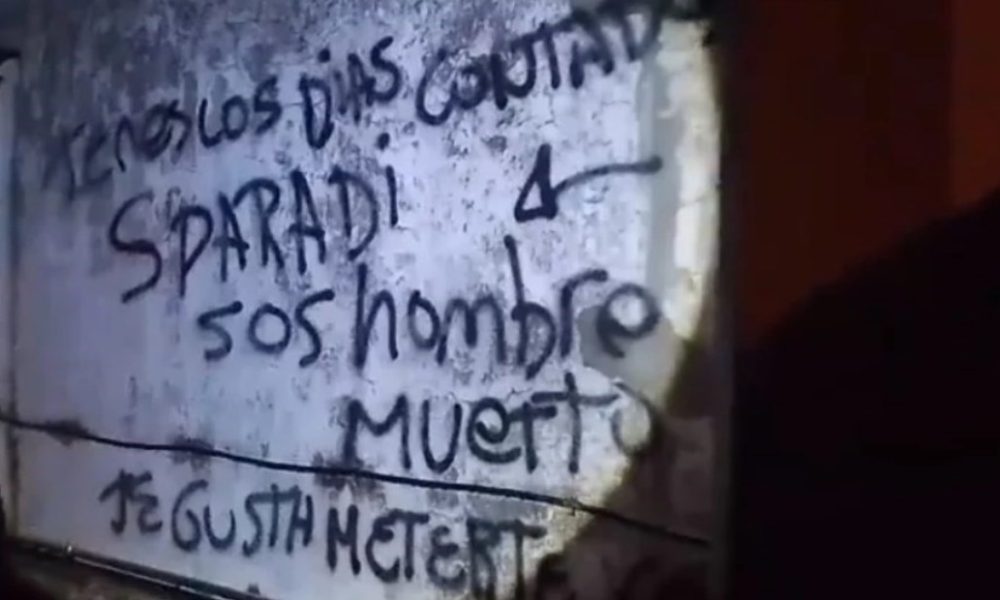 TENES LOS DIAS CONTAD
SPARADI
SOS hombre
MUERTO
TE GUSTA METERTE